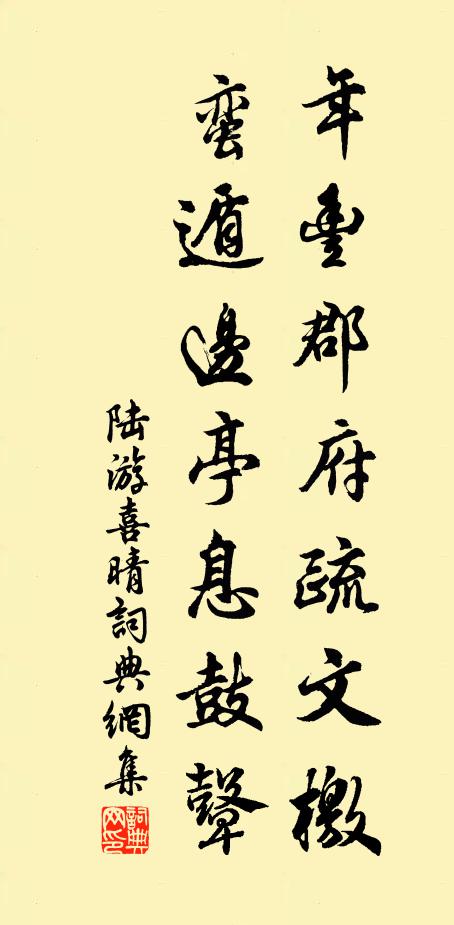 年豐郡府疏文檄
蛮遁邊亭息鼓鼙
陆游喜晴詞典網集
詞典网印